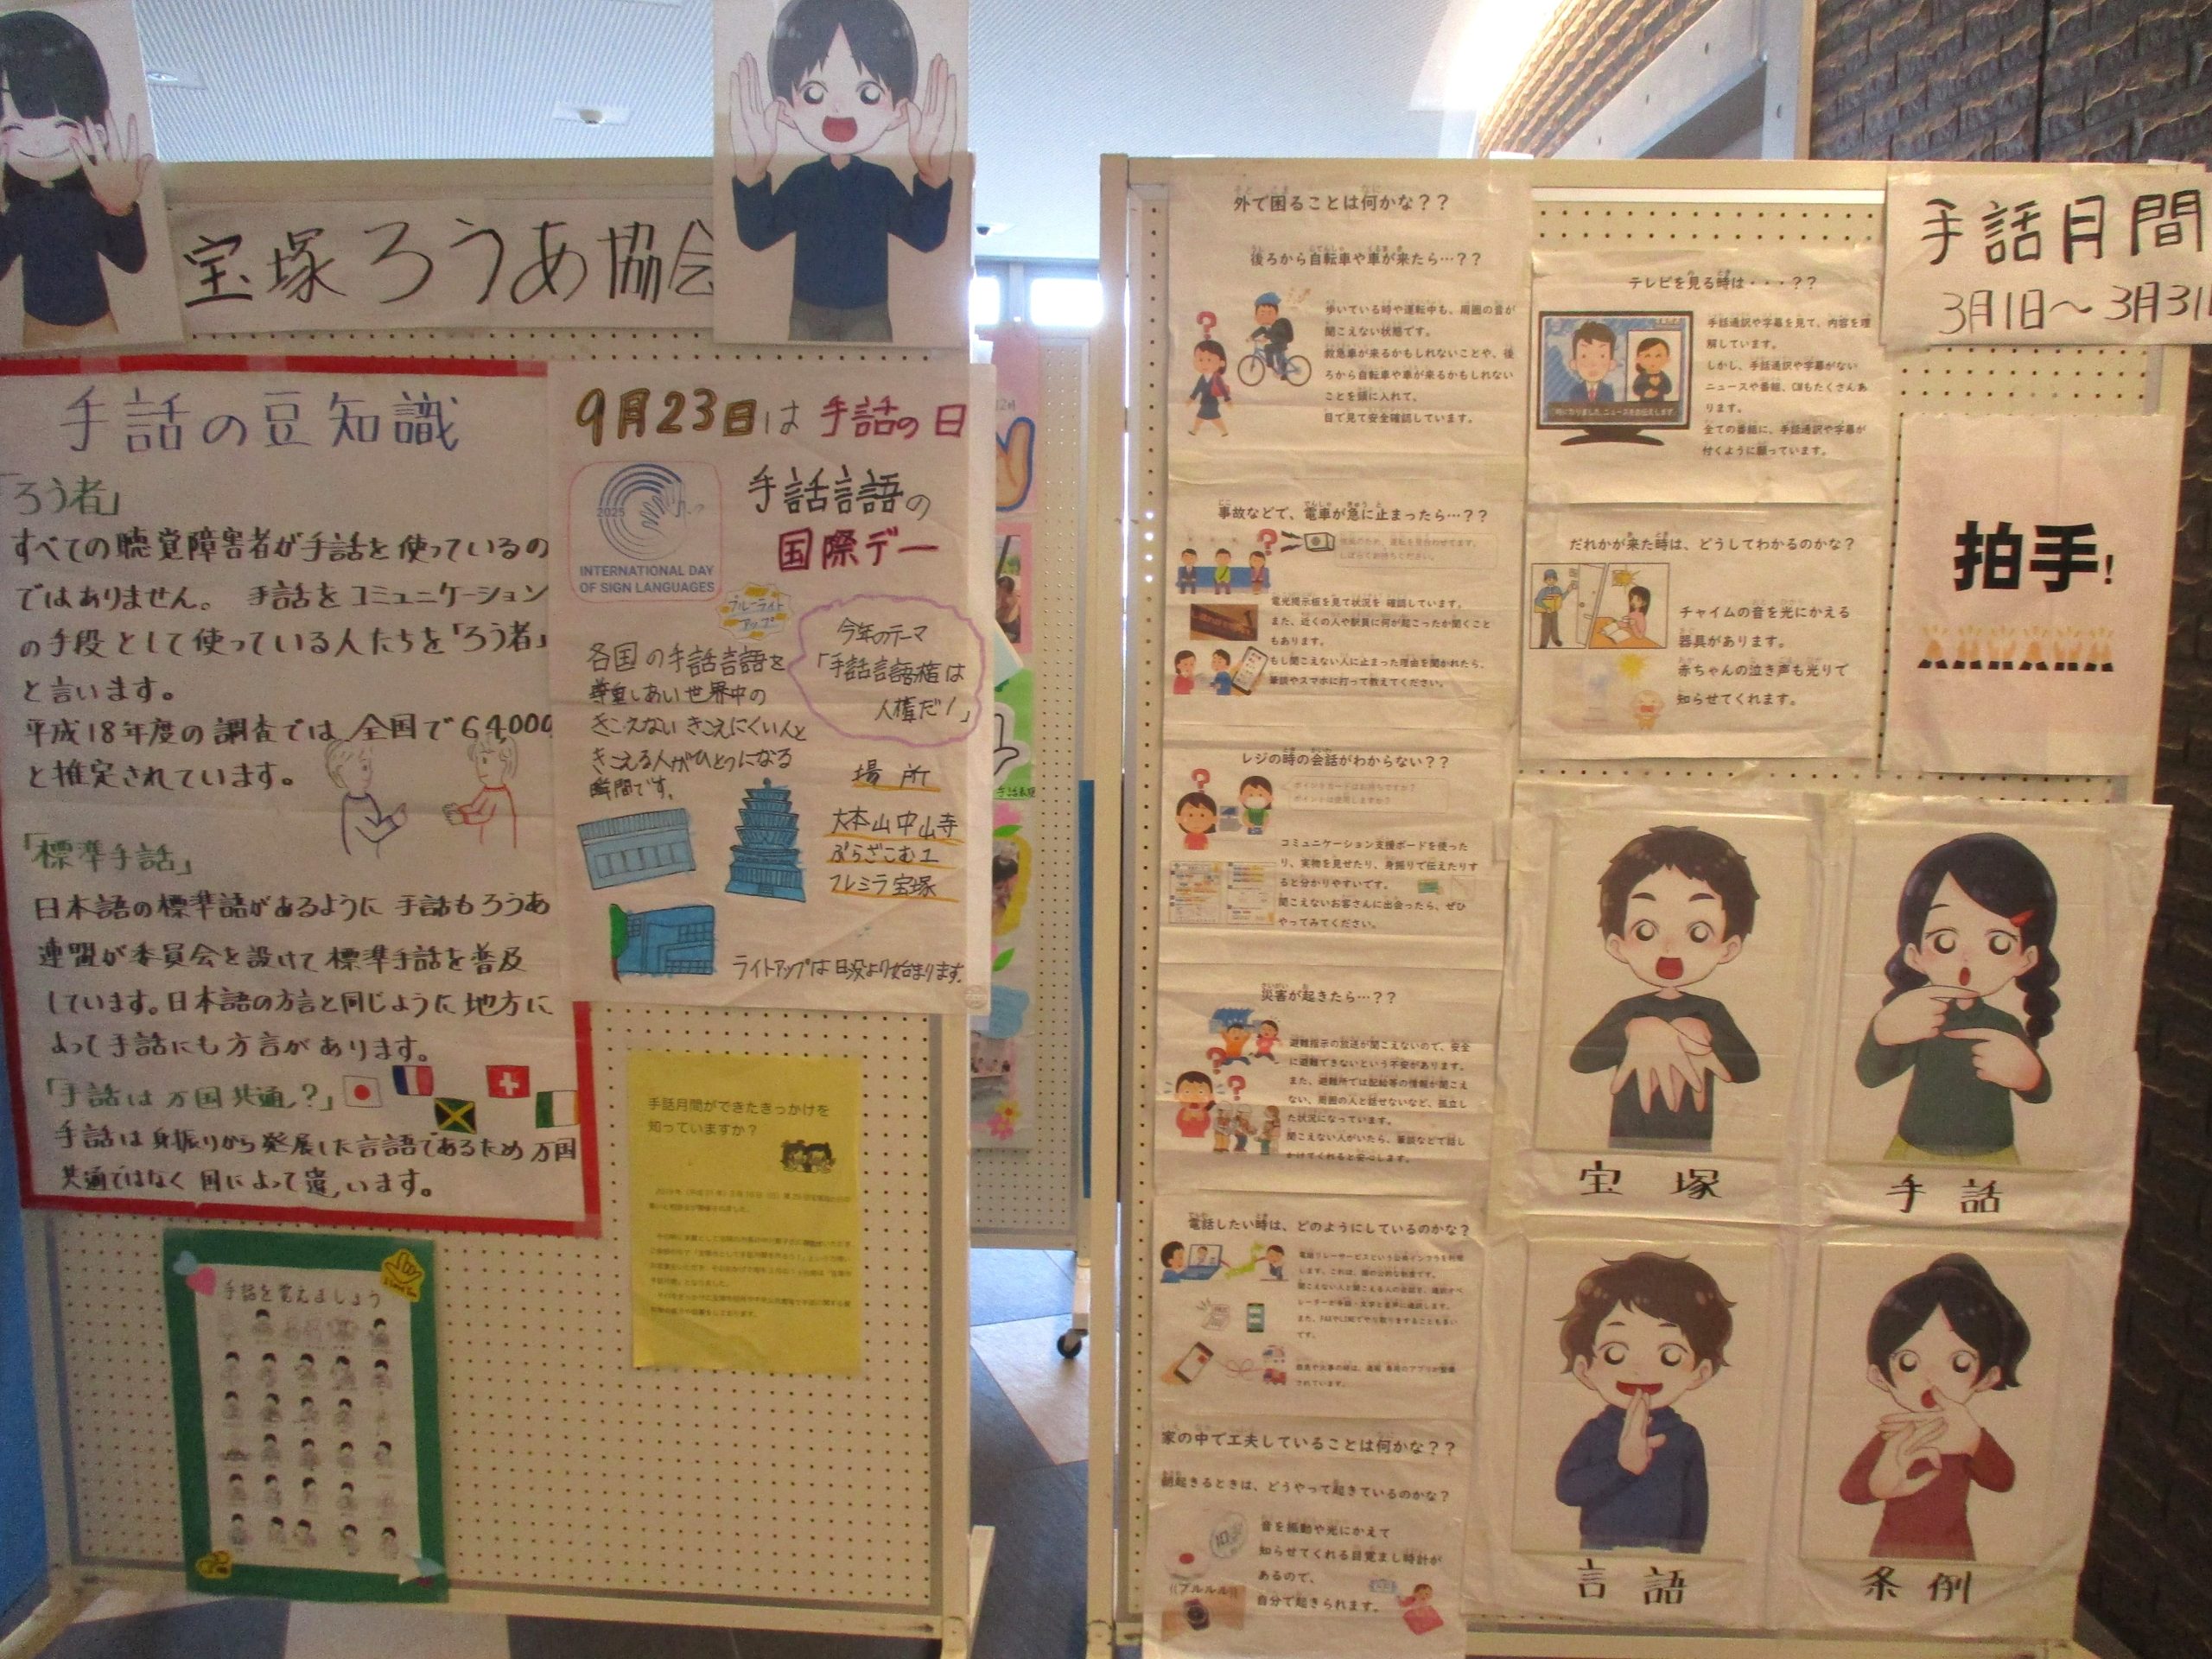 宝塚ろうあ協会
手話の豆知識
「ろう者」
すべての聴覚障害者が手話を使っているの
ではありません。 手話をコミュニケーション
の手段として使っている人たちを「ろう者」
と言います。
平成18年度の調査では 全国で64000
と推定されています。
「標準手話」
日本語の標準語があるように 手話もろうあ
連盟が委員会を設けて 標準手話を普及
しています。日本語の方言と同じように 地方に
よって手話にも方言があります。
「手話は万国共通?」
手話は身振りから発展した言語であるため 万国
共通ではなく 国によって違います。
手話を覚えましょう
9月23日は 手話の日
手話言語の
国際デー
2025
INTERNATIONAL DAY
OF SIGN LANGUAGES
ブルーライト
アップ
各国の手話言語を
尊重しあい世界中の
きこえない きこえにくい人と
きこえる人がひとつになる
瞬間です。
今年のテーマ
「手話言語権は
人権だ!」
場所
大本山中山寺
ぷらざこむ1
フレミラ宝塚
ライトアップは日没より始まります。
手話月間ができたきっかけを
知っていますか?
外で困ることは何かな??
後ろから自転車や車が来たら…??
歩いている時や運転中も、周囲の音が
聞こえない状態です。
救急車が来るかもしれないことや、後
ろから自転車や車が来るかもしれない
ことを頭に入れて、
目で見て安全確認しています。
事故などで、電車が急に止まったら…??
電光掲示板を見て状況を 確認しています。
また、近くの人や駅員に何が起こったか聞くこと
もあります。
もし聞こえない人に止まった理由を聞かれたら、
筆談やスマホに打って教えてください。
レジの時の会話がわからない??
ポイントカードはお持ちですか?
ポイントは使用しますか?
コミュニケーション支援ボードを使った
り、実物を見せたり、身振りで伝えたりす
ると分かりやすいです。
聞こえないお客さんに出会ったら、ぜひ
やってみてください。
災害が起きたら…??
避難指示の放送が聞こえないので、安全
に避難できないという不安があります。
また、避難所では配給等の情報が聞こえ
ない、周囲の人と話せないなど、孤立し
た状況になっています。
聞こえない人がいたら、筆談などで話し
かけてくれると安心します。
電話したい時は、どのようにしているのかな?
電話リレーサービスという公共インフラを利用
します。これは、国の公的な制度です。
聞こえない人と聞こえる人の会話を、通訳オペ
レーターが手話・文字と音声に通訳します。
また、FAXやLINEでやり取りをすることも多い
です。
家の中で工夫していることは何かな??
朝起きるときは、どうやって起きているのかな?
音を振動や光にかえて
知らせてくれる目覚まし時計が
あるので、
自分で起きられます。
((ブルルル))
テレビを見る時は・・・??
手話通訳や字幕を見て、内容を理
解しています。
しかし、手話通訳や字幕がない
ニュースや番組、CMもたくさんあ
ります。
全ての番組に、手話通訳や字幕が
付くように願っています。
だれかが来た時は、どうしてわかるのかな?
チャイムの音を光にかえる
器具があります。
赤ちゃんの泣き声も光りで
知らせてくれます。
手話月間
3月1日～3月31
拍手!
宝塚
手話
言語
条例